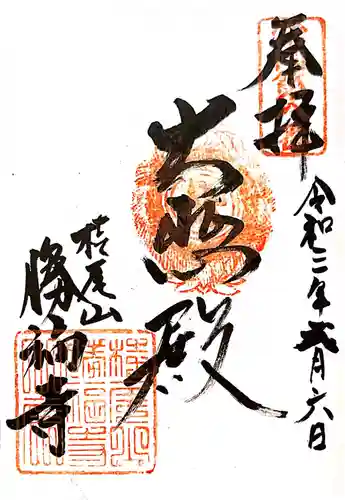 奉拝
令和三年弐月六日
大悲殿
桂尾山
勝福寺